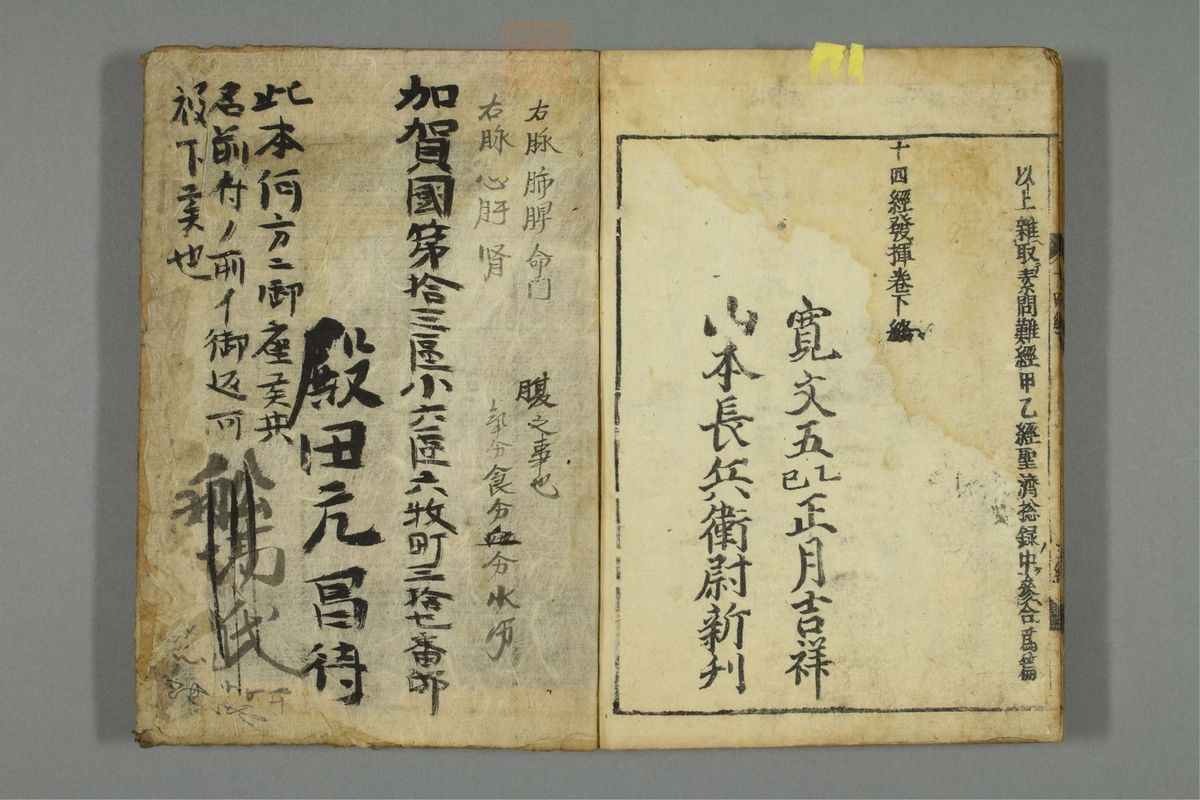 以上雜取素問難經甲乙經聖濟捴錄中參合爲篇
十四經發揮卷下終
寬文五乙巳正月吉祥
山本長兵衛尉新刋
右脉肺脾命门
右脉心肝肾
腹之事也
氣分食分血分水分
加賀國第拾三區小六區六牧町三拾七番邸
殿田元昌待
此本何方ニ御座候共
名前付ノ所イ御返可
被下候也